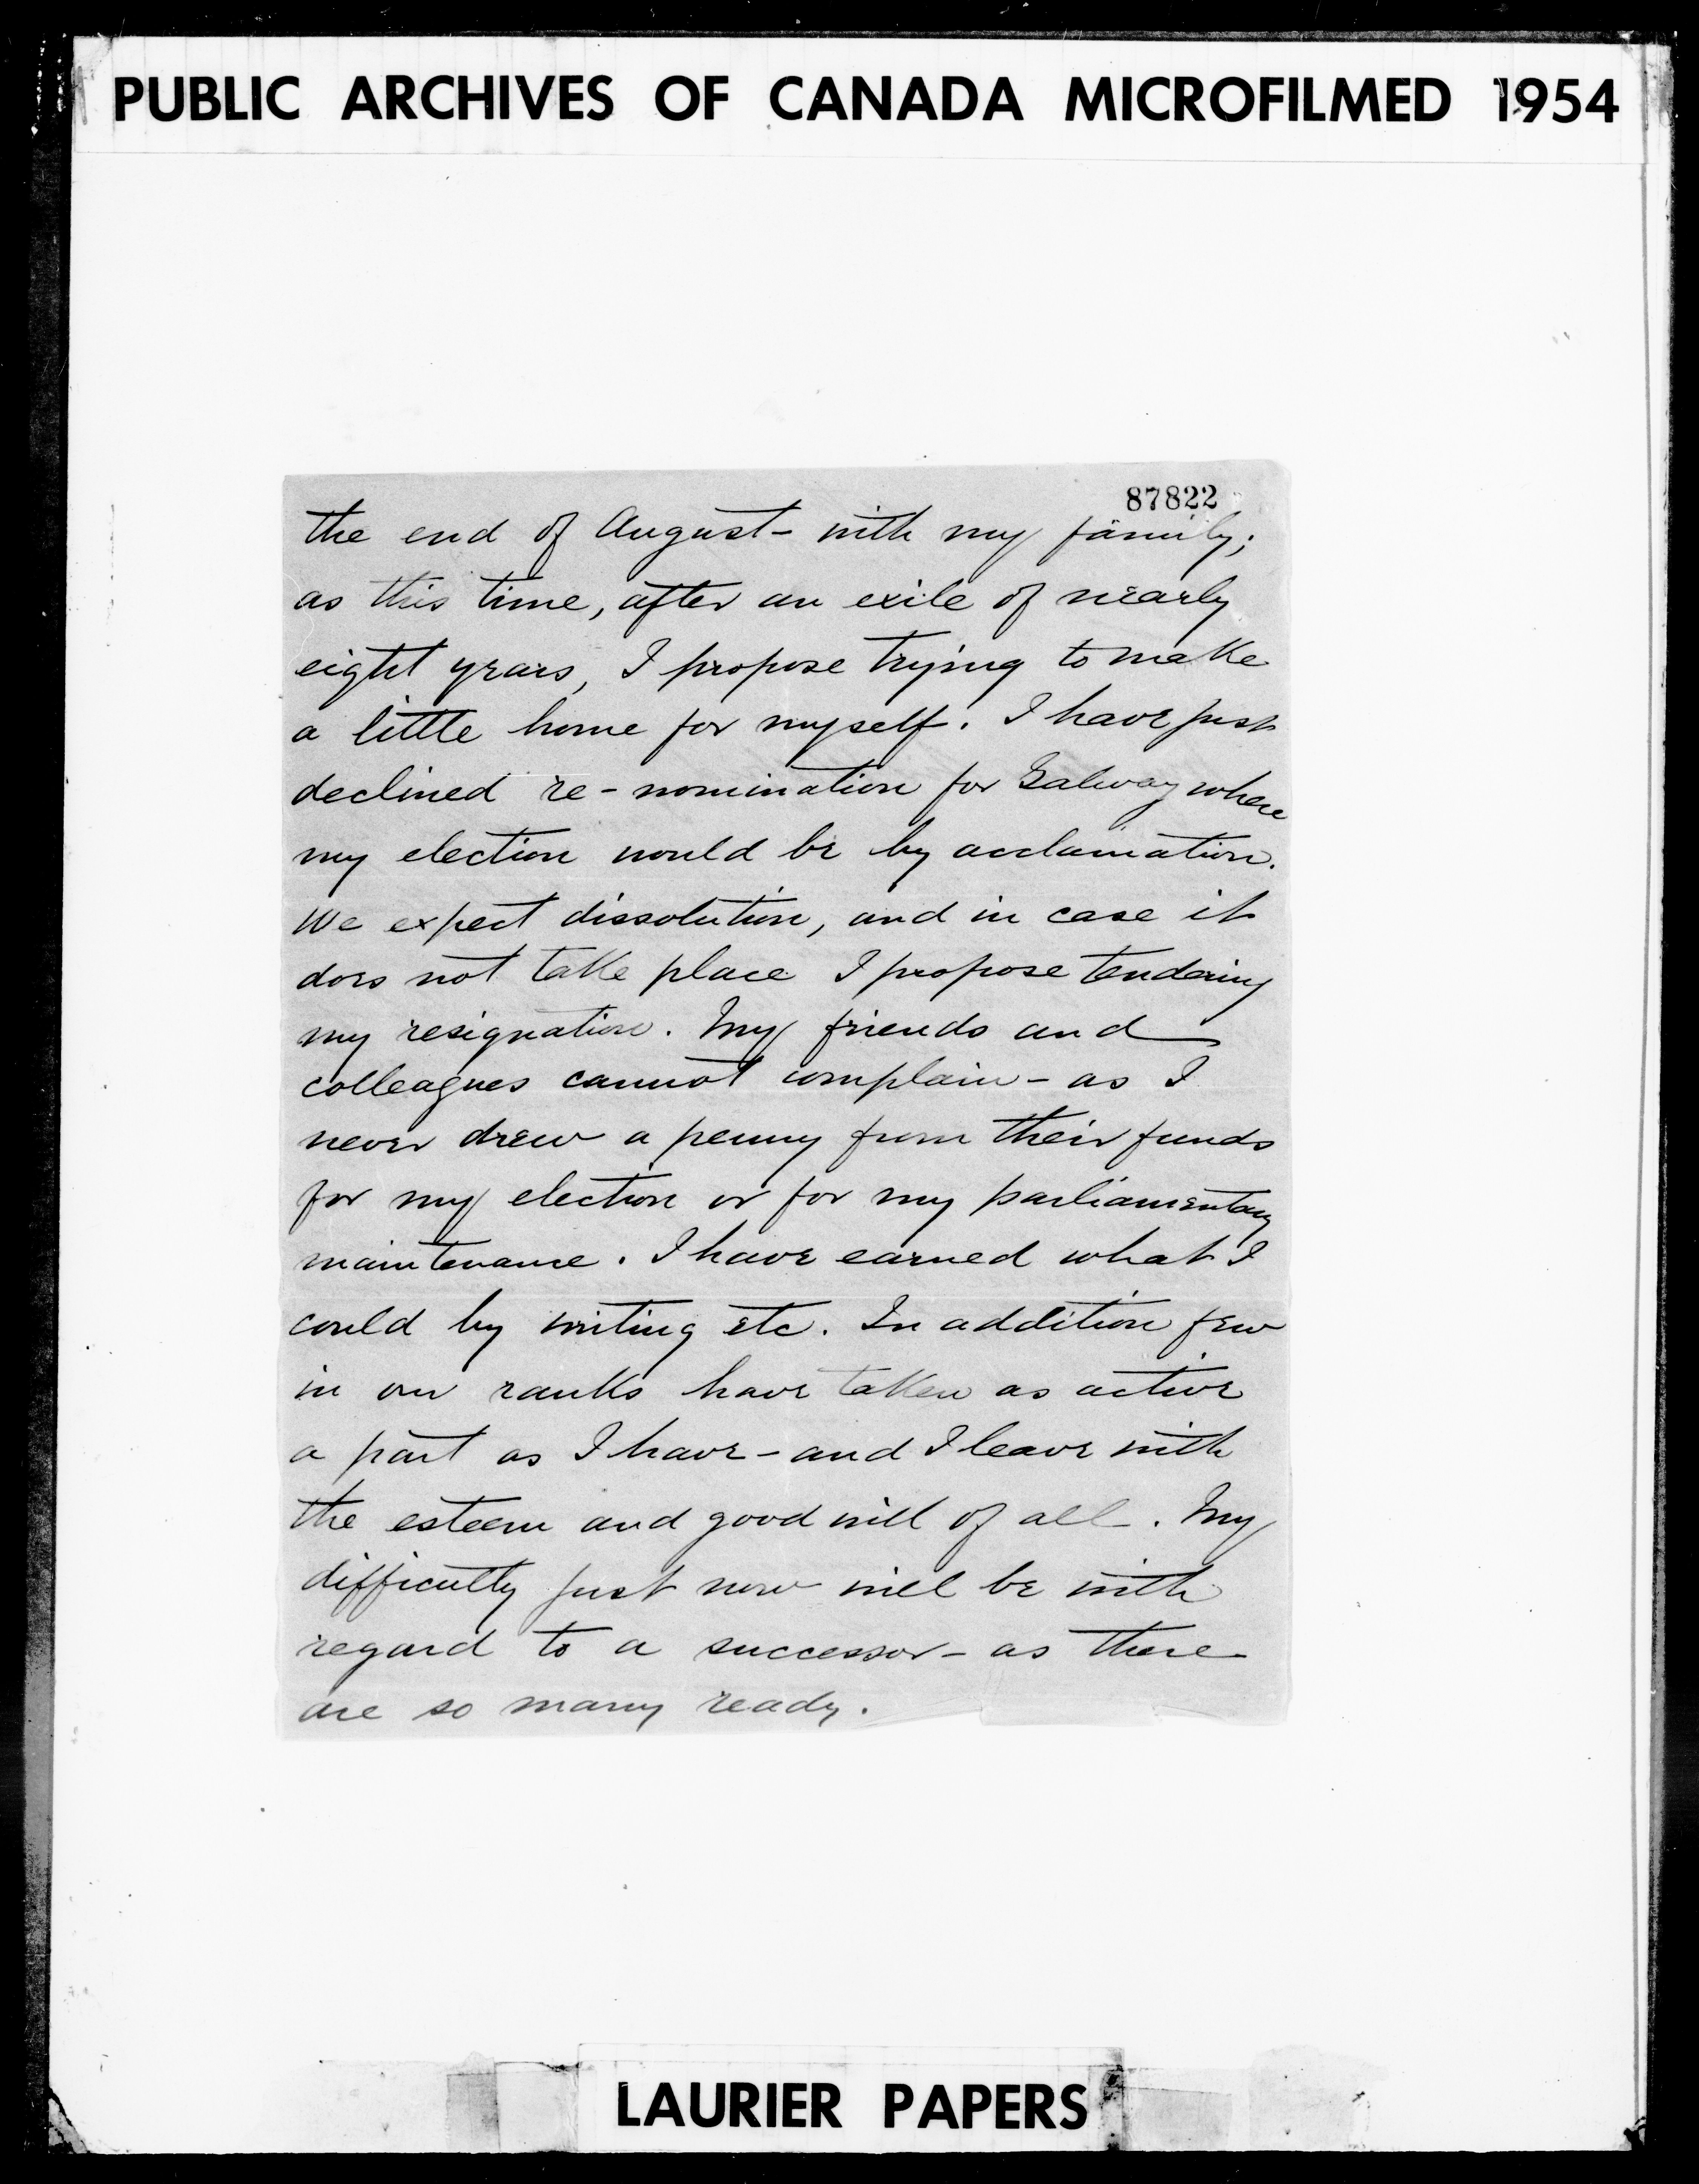 PUBLIC ARCHIVES OF CANADA MICROFILMED 1954
87822
the end of August - with my family;
as this time, after an exile of nearly
eight years, I propose trying to make
a little home for myself. I have just
declined re-nomination for Galway where
my election would be by acclamation.
We expect dissolution, and in case it
does not take place I propose tendering
my resignation. My friends and
colleagues cannot complain - as I
never drew a penny from their funds
for my election or for my parliamentary
maintenance. I have earned what I
could by writing etc. In addition few
in our ranks have taken as active
a part as I have - and I leave with
the esteem and good will of all. My
difficulty just now will be with
regard to a successor - as there
are so many ready.
LAURIER PAPERS